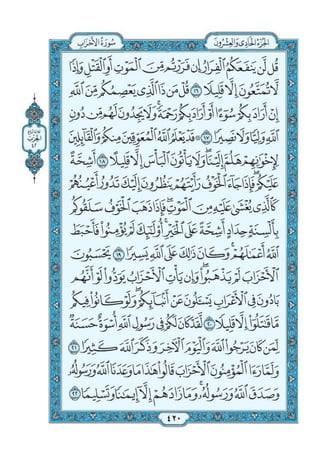 الجزء الحادي والعشرون
سورة الأحزاب
قُل لَّن يَنفَعَكُمُ ٱلْفِرَارُ إِن فَرَرْتُم مِّنَ ٱلْمَوْتِ أَوِ ٱلْقَتْلِ وَإِذًا
لَّا تُمَتَّعُونَ إِلَّا قَلِيلًا ١٦ قُلْ مَن ذَا ٱلَّذِى يَعْصِمُكُم مِّنَ ٱللَّهِ
إِنْ أَرَادَ بِكُمْ سُوٓءًا أَوْ أَرَادَ بِكُمْ رَحْمَةً وَلَا يَجِدُونَ لَهُم مِّن دُونِ
ٱللَّهِ وَلِيًّا وَلَا نَصِيرًا ١٧ قَدْ يَعْلَمُ ٱللَّهُ ٱلْمُعَوِّقِينَ مِنكُمْ وَٱلْقَآئِلِينَ
لِإِخْوَٰنِهِمْ هَلُمَّ إِلَيْنَا وَلَا يَأْتُونَ ٱلْبَأْسَ إِلَّا قَلِيلًا ١٨ أَشِحَّةً
عَلَيْكُمْ فَإِذَا جَآءَ ٱلْخَوْفُ رَأَيْتَهُمْ يَنظُرُونَ إِلَيْكَ تَدُورُ أَعْيُنُهُمْ
كَٱلَّذِى يُغْشَىٰ عَلَيْهِ مِنَ ٱلْمَوْتِ فَإِذَا ذَهَبَ ٱلْخَوْفُ سَلَقُوكُم
بِأَلْسِنَةٍ حِدَادٍ أَشِحَّةً عَلَى ٱلْخَيْرِ أُو۟لَٰٓئِكَ لَمْ يُؤْمِنُوا۟ فَأَحْبَطَ
ٱللَّهُ أَعْمَٰلَهُمْ وَكَانَ ذَٰلِكَ عَلَى ٱللَّهِ يَسِيرًا ١٩ يَحْسَبُونَ
ٱلْأَحْزَابَ لَمْ يَذْهَبُوا۟ وَإِن يَأْتِ ٱلْأَحْزَابُ يَوَدُّوا۟ لَوْ أَنَّهُم
بَادُونَ فِى ٱلْأَعْرَابِ يَسْـَٔلُونَ عَنْ أَنۢبَآئِكُمْ وَلَوْ كَانُوا۟ فِيكُم
مَّا قَٰتَلُوٓا۟ إِلَّا قَلِيلًا ٢٠ لَّقَدْ كَانَ لَكُمْ فِى رَسُولِ ٱللَّهِ أُسْوَةٌ حَسَنَةٌ
لِّمَن كَانَ يَرْجُوا۟ ٱللَّهَ وَٱلْيَوْمَ ٱلْءَاخِرَ وَذَكَرَ ٱللَّهَ كَثِيرًا ٢١
وَلَمَّا رَءَا ٱلْمُؤْمِنُونَ ٱلْأَحْزَابَ قَالُوا۟ هَٰذَا مَا وَعَدَنَا ٱللَّهُ وَرَسُولُهُۥ
وَصَدَقَ ٱللَّهُ وَرَسُولُهُۥ وَمَا زَادَهُمْ إِلَّآ إِيمَٰنًا وَتَسْلِيمًا ٢٢
٤٢٠